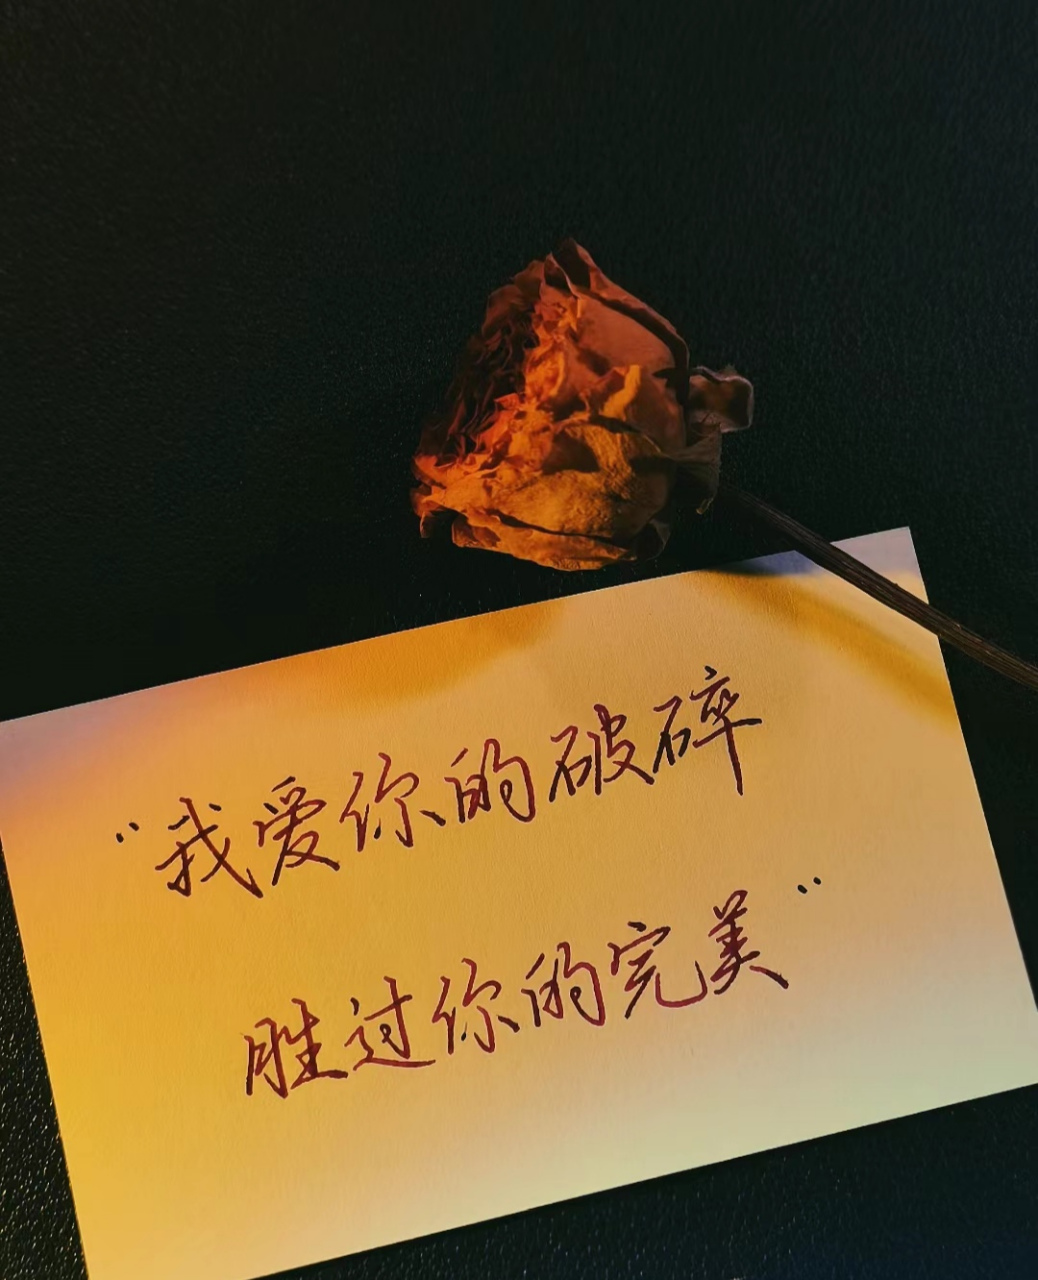 “我爱你的破碎
胜过你的完美”